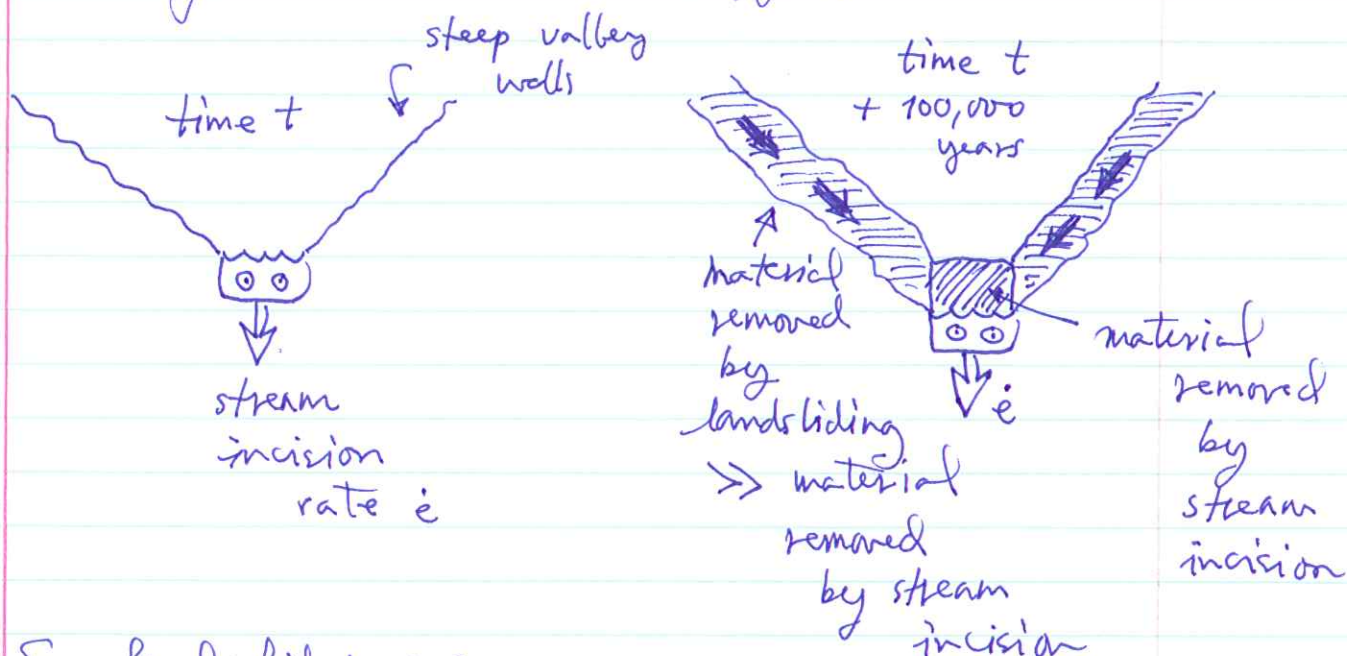 steep valley
walls
time t
stream
incision
rate ė
time t
+ 100,000
years
material
removed
by
landsliding
>> material
removed
by stream
incision
ė
material
removed
by
stream
incision